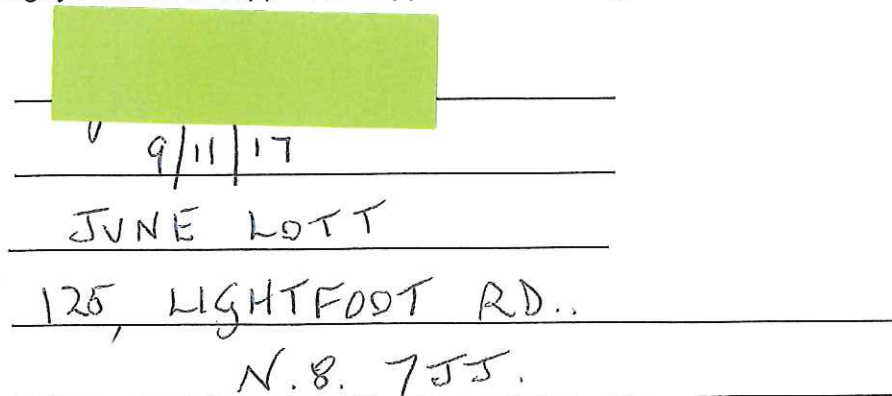 9/11/17
JUNE LOTT
125, LIGHTFOOT RD..
N.8. 7JJ.